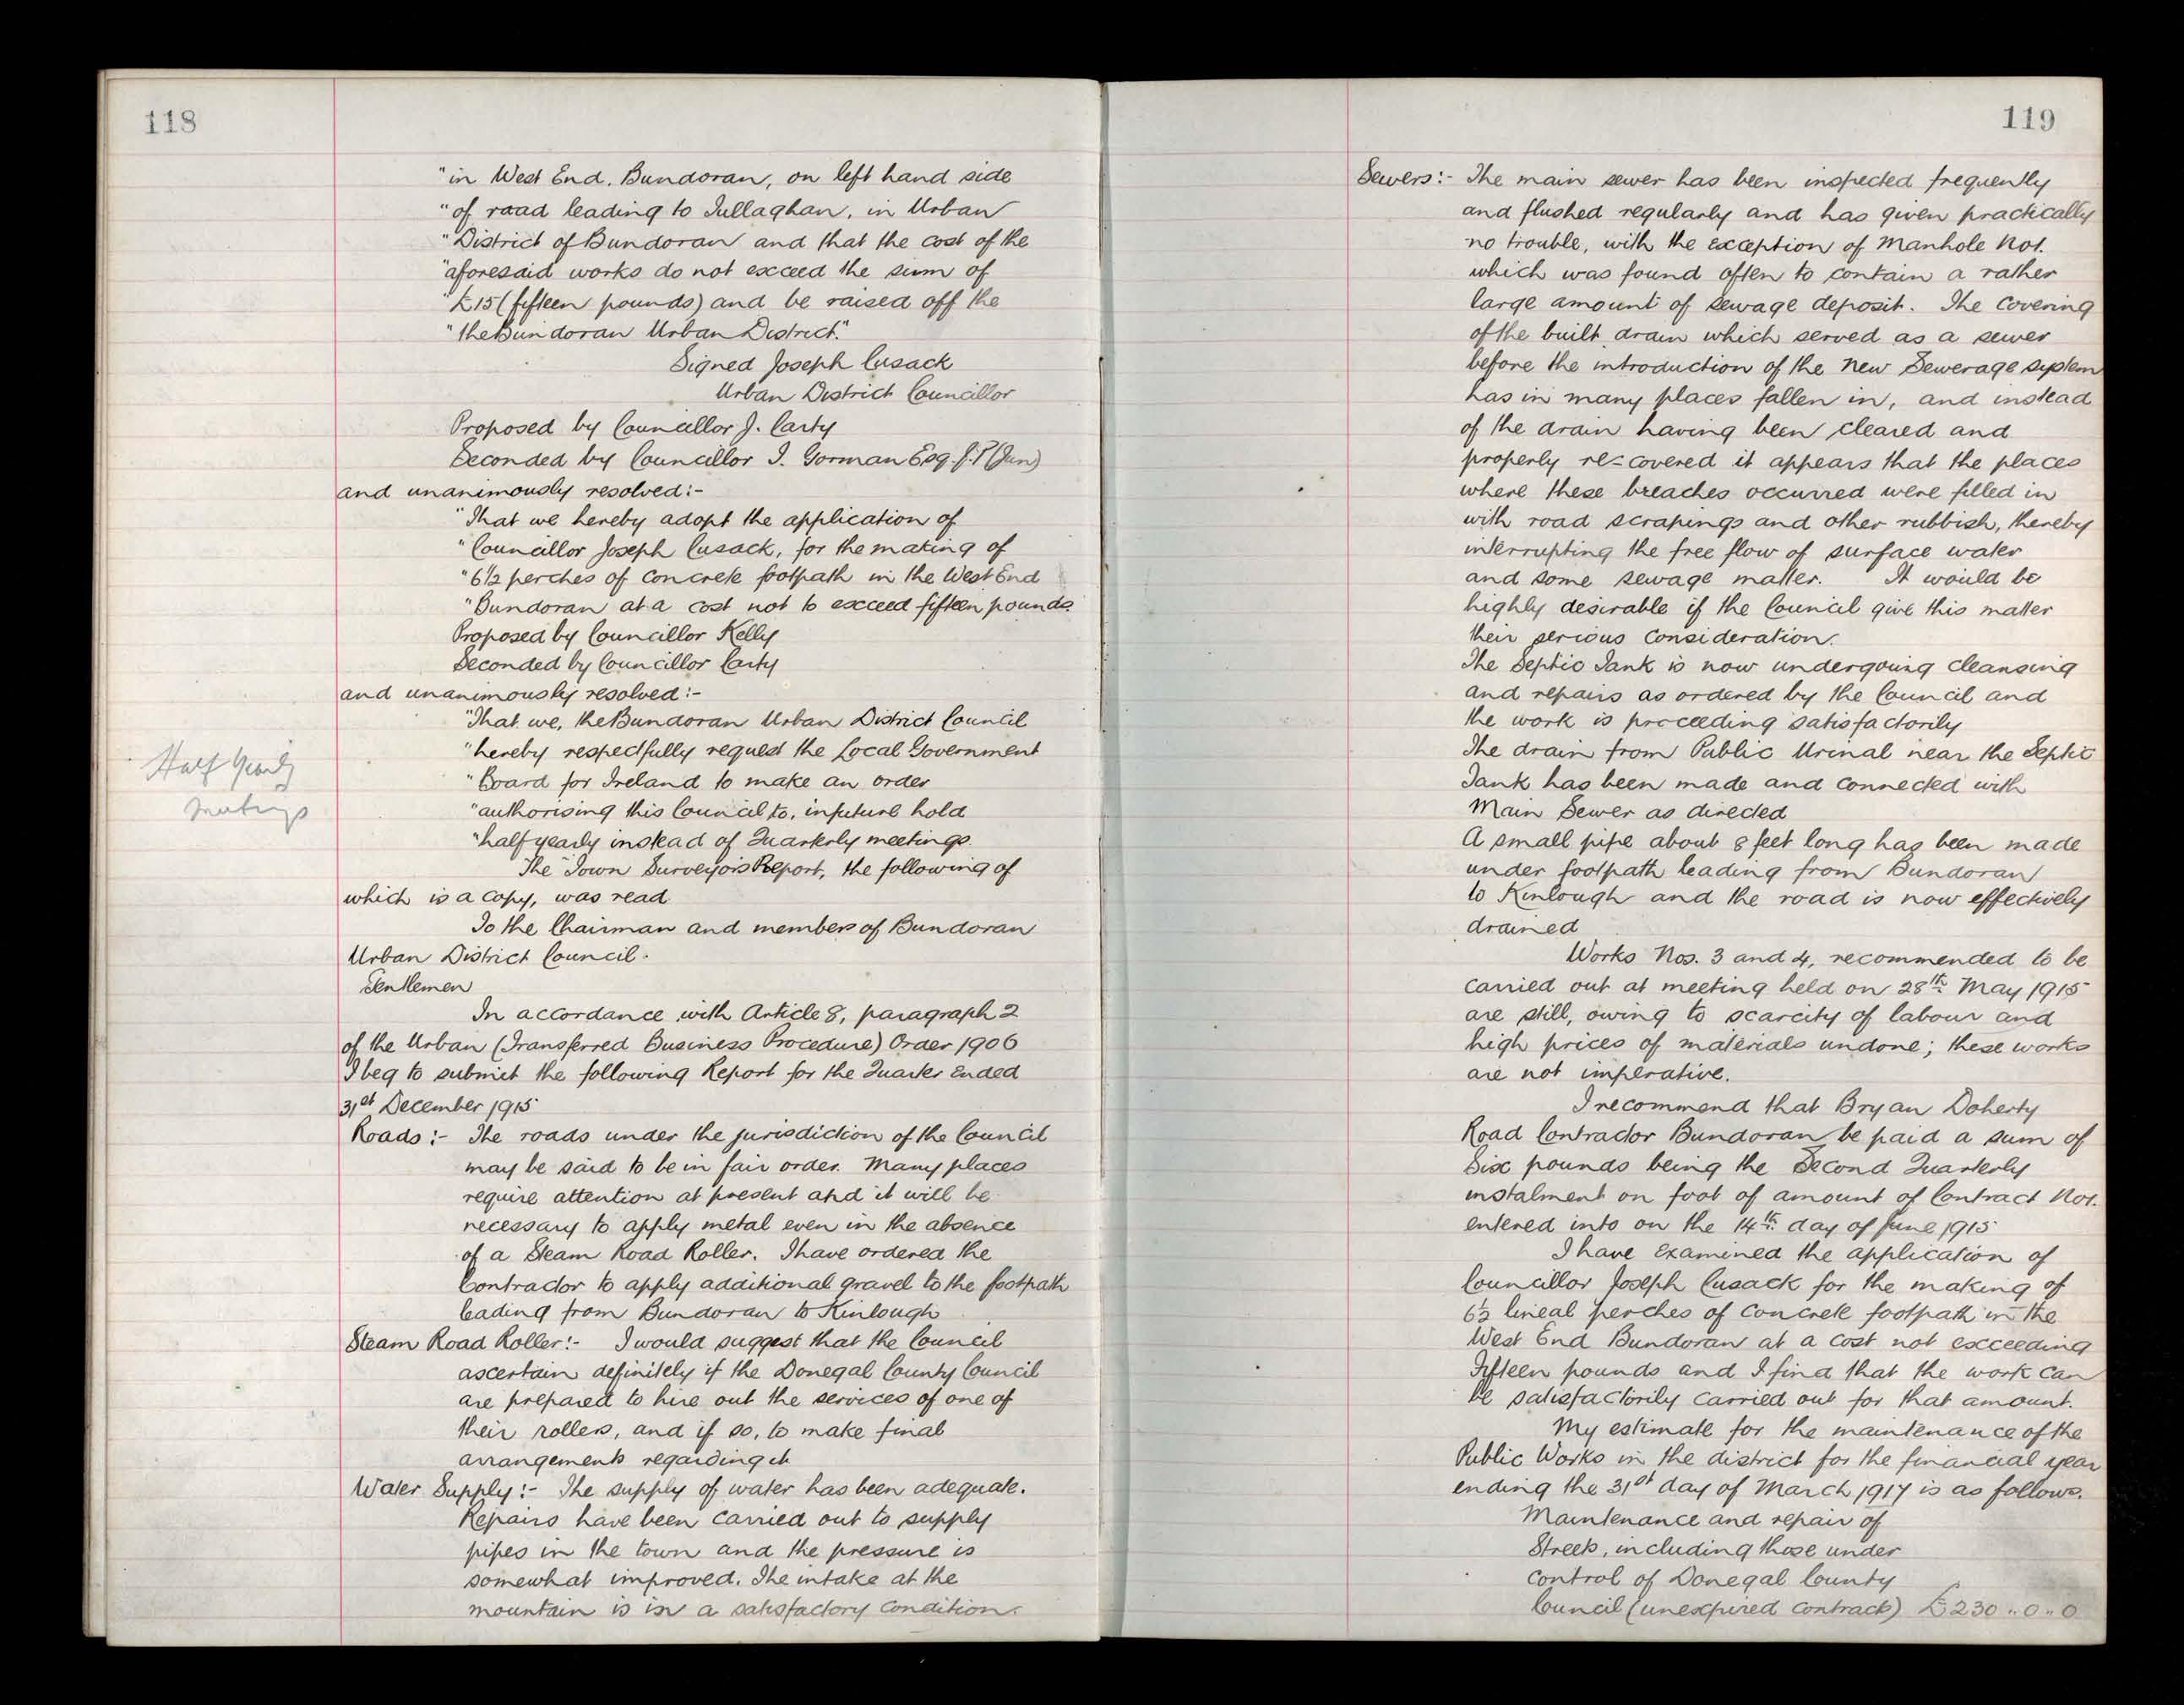 118
"in West End. Bundoran, on left hand side
"of road leading to Tullaghan, in Urban
"District of Bundoran and that the cost of the
"aforesaid works do not exceed the sum of
"£15 (fifteen pounds) and be raised off the
"the Bundoran Urban District."
Signed Joseph Cusack
Urban District Councillor
Proposed by Councillor J. Carty
Seconded by Councillor T. Gorman Esq. J.P. (Jun)
and unanimously resolved:-
"That we hereby adopt the application of
"Councillor Joseph Cusack, for the making of
"6½ perches of concrete footpath in the West End
"Bundoran at a cost not to exceed fifteen pounds.
Proposed by Councillor Kelly
Seconded by Councillor Carty
and unanimously resolved:-
"That we, the Bundoran Urban District Council
"hereby respectfully request the Local Government
"Board for Ireland to make an order
"authorising this Council to, in future hold
"half-yearly instead of Quarterly meetings.
Half Yearly
Meetings
The Town Surveyor's Report, the following of
which is a copy, was read
To the Chairman and members of Bundoran
Urban District Council.
Gentlemen
In accordance with Article 8, paragraph 2
of the Urban (Transferred Business Procedure) Order 1906
I beg to submit the following Report for the Quarter Ended
31st December 1915
Roads:- The roads under the jurisdiction of the Council
may be said to be in fair order. Many places
require attention at present and it will be
necessary to apply metal even in the absence
of a Steam Road Roller. I have ordered the
Contractor to apply additional gravel to the footpath
leading from Bundoran to Kinlough
Steam Road Roller:- I would suggest that the Council
ascertain definitely if the Donegal County Council
are prepared to hire out the services of one of
their rollers, and if so, to make final
arrangements regarding it
Water Supply:- The supply of water has been adequate.
Repairs have been carried out to supply
pipes in the town and the pressure is
somewhat improved. The intake at the
mountain is in a satisfactory condition.
119
Sewers:- The main sewer has been inspected frequently
and flushed regularly and has given practically
no trouble, with the exception of Manhole No1.
which was found often to contain a rather
large amount of sewage deposit. The covering
of the built drain which served as a sewer
before the introduction of the new Sewerage system
has in many places fallen in, and instead
of the drain having been cleared and
properly re-covered it appears that the places
where these breaches occurred were filled in
with road scrapings and other rubbish, thereby
interrupting the free flow of surface water
and some sewage matter. It would be
highly desirable if the Council give this matter
their serious consideration.
The Septic Tank is now undergoing cleansing
and repairs as ordered by the Council and
the work is proceeding satisfactorily
The drain from Public Urinal near the Septic
Tank has been made and connected with
Main Sewer as directed
A small pipe about 8 feet long has been made
under footpath leading from Bundoran
to Kinlough and the road is now effectively
drained
Works Nos. 3 and 4, recommended to be
carried out at meeting held on 28th May 1915
are still, owing to scarcity of labour and
high prices of materials undone; these works
are not imperative.
I recommend that Bryan Doherty
Road Contractor Bundoran be paid a sum of
Six pounds being the Second Quarterly
instalment on foot of amount of Contract No1.
entered into on the 14th day of June 1915
I have examined the application of
Councillor Joseph Cusack for the making of
6½ lineal perches of concrete footpath in the
West End Bundoran at a cost not exceeding
Fifteen pounds and I find that the work can
be satisfactorily carried out for that amount.
My estimate for the maintenance of the
Public Works in the district for the financial year
ending the 31st day of March 1917 is as follows.
Maintenance and repair of
Streets, including those under
control of Donegal County
Council (unexpired contract) £230..0..0